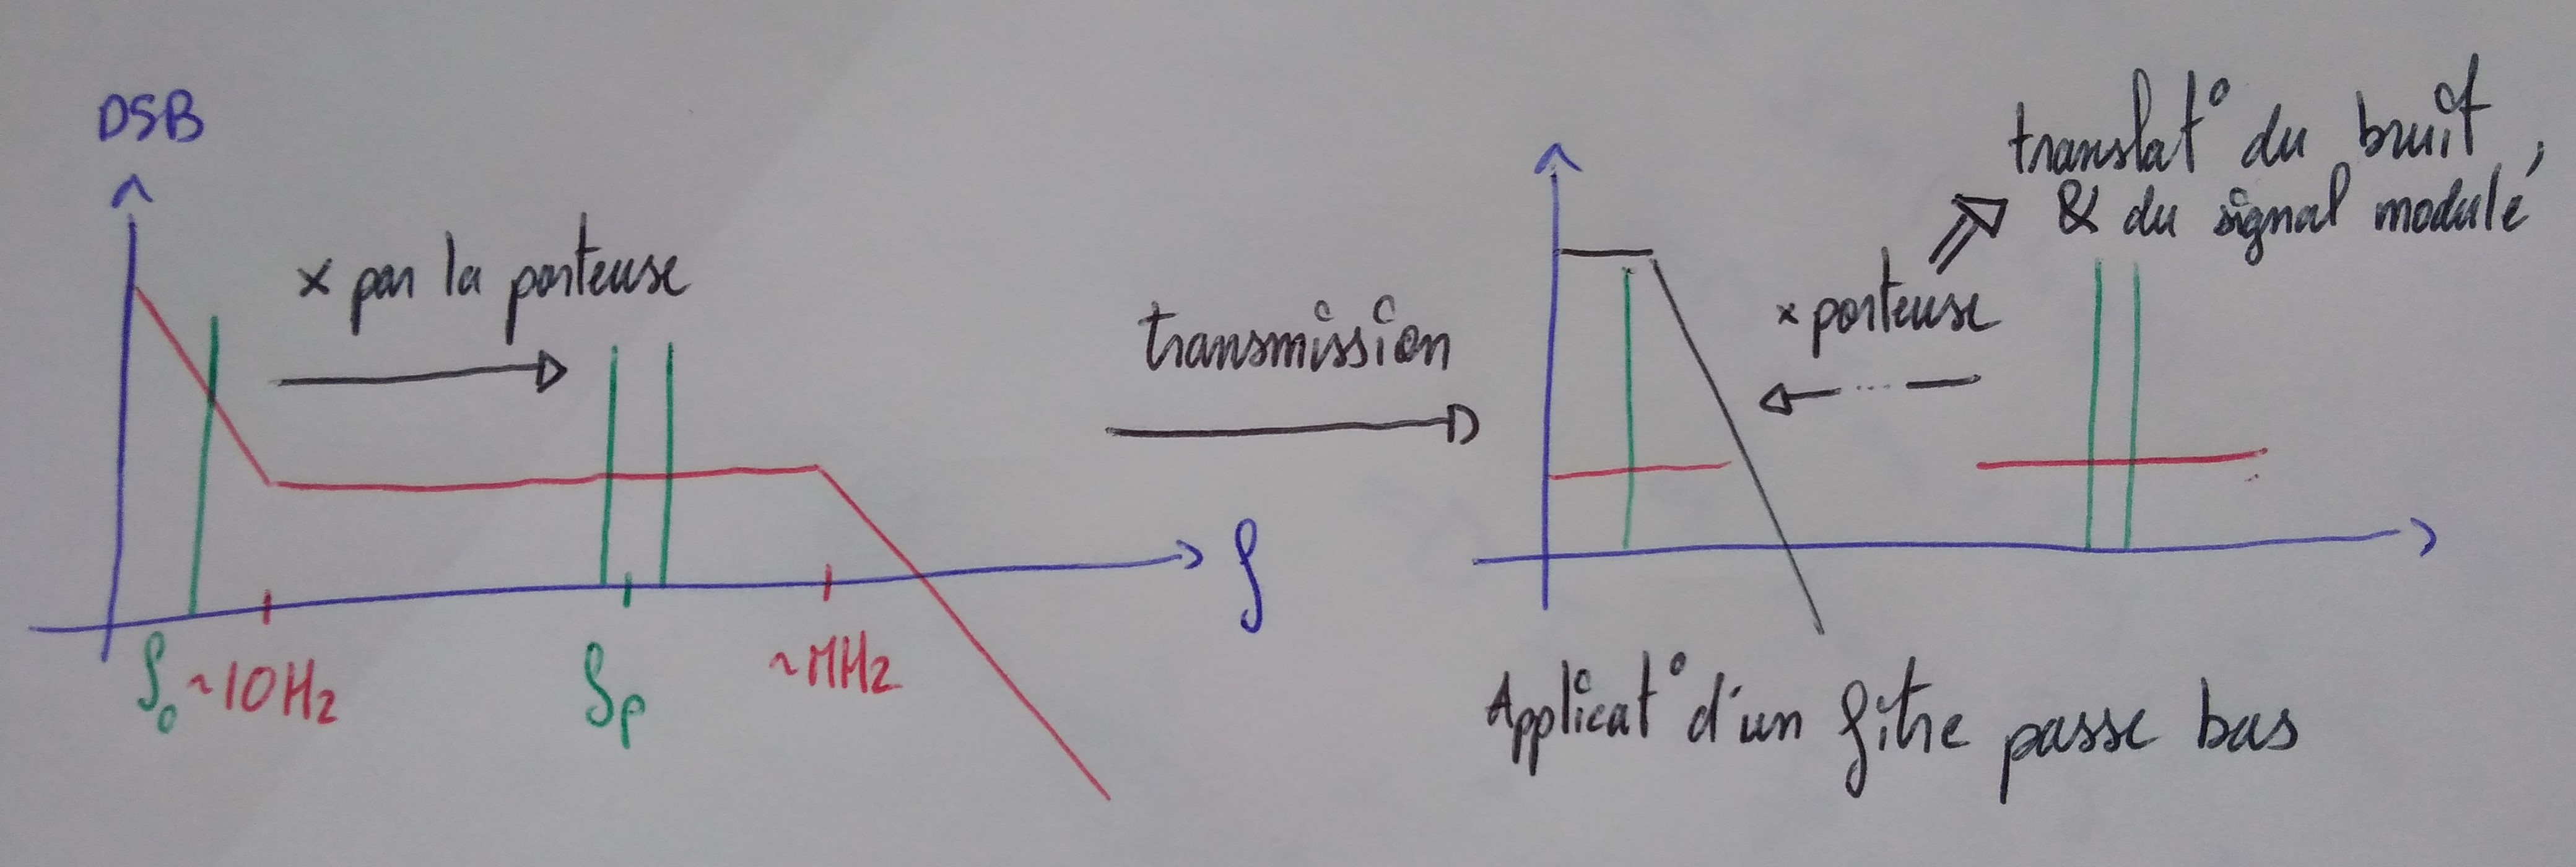 DSB
× par la porteuse
f₀
~10Hz
fp
~MHz
f
transmission
translat° du bruit,
& du signal modulé
× porteuse
Applicat° d'un fitre passe bas